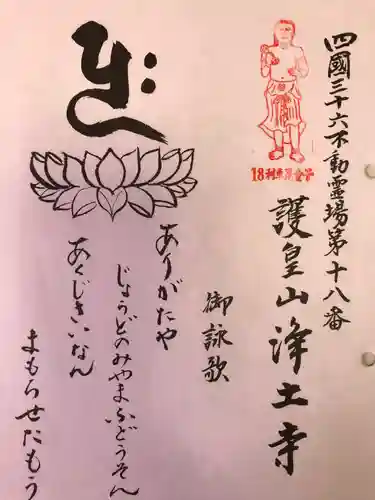 四國三十六不動霊場第十八番
護皇山浄土寺
御詠歌
ありがたや
じょうどのみやまふどうそん
あくじさいなん
まもらせたもう
18